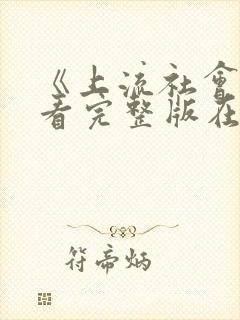 《上流社會
看完整版在
符帝炳